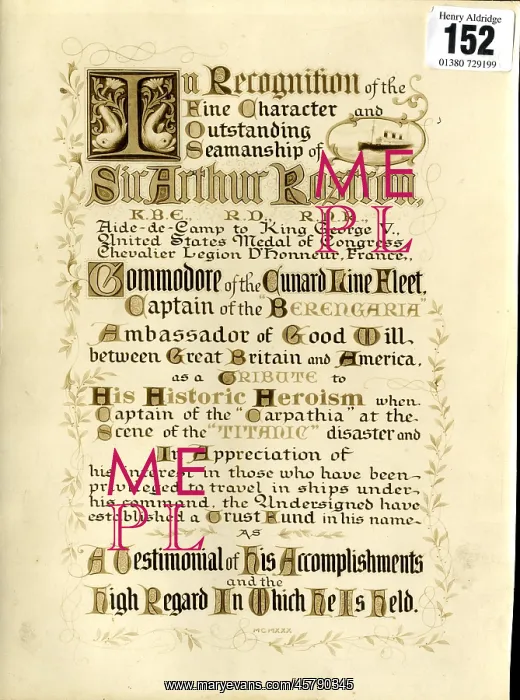 Henry Aldridge
152
01380 729199
In Recognition of the
Fine Character and
Outstanding
Seamanship of
Sir Arthur Rostron,
K.B.E., R.D., R.N.R.,
Aide-de-Camp to King George V.,
United States Medal of Congress,
Chevalier Legion D'Honneur, France,,
Commodore of the Cunard Line Fleet,
Captain of the "BERENGARIA"
Ambassador of Good Will,
between Great Britain and America,
as a TRIBUTE to
His Historic Heroism when
Captain of the "Carpathia" at the
Scene of the "TITANIC" disaster and
In Appreciation of
his interest in those who have been
privileged to travel in ships under
his command, the Undersigned have
established a Trust Fund in his name
AS
A Testimonial of His Accomplishments
and the
High Regard In Which He Is Held.
MCMXXX
ME
PL
ME
PL
www.maryevans.com/45790345